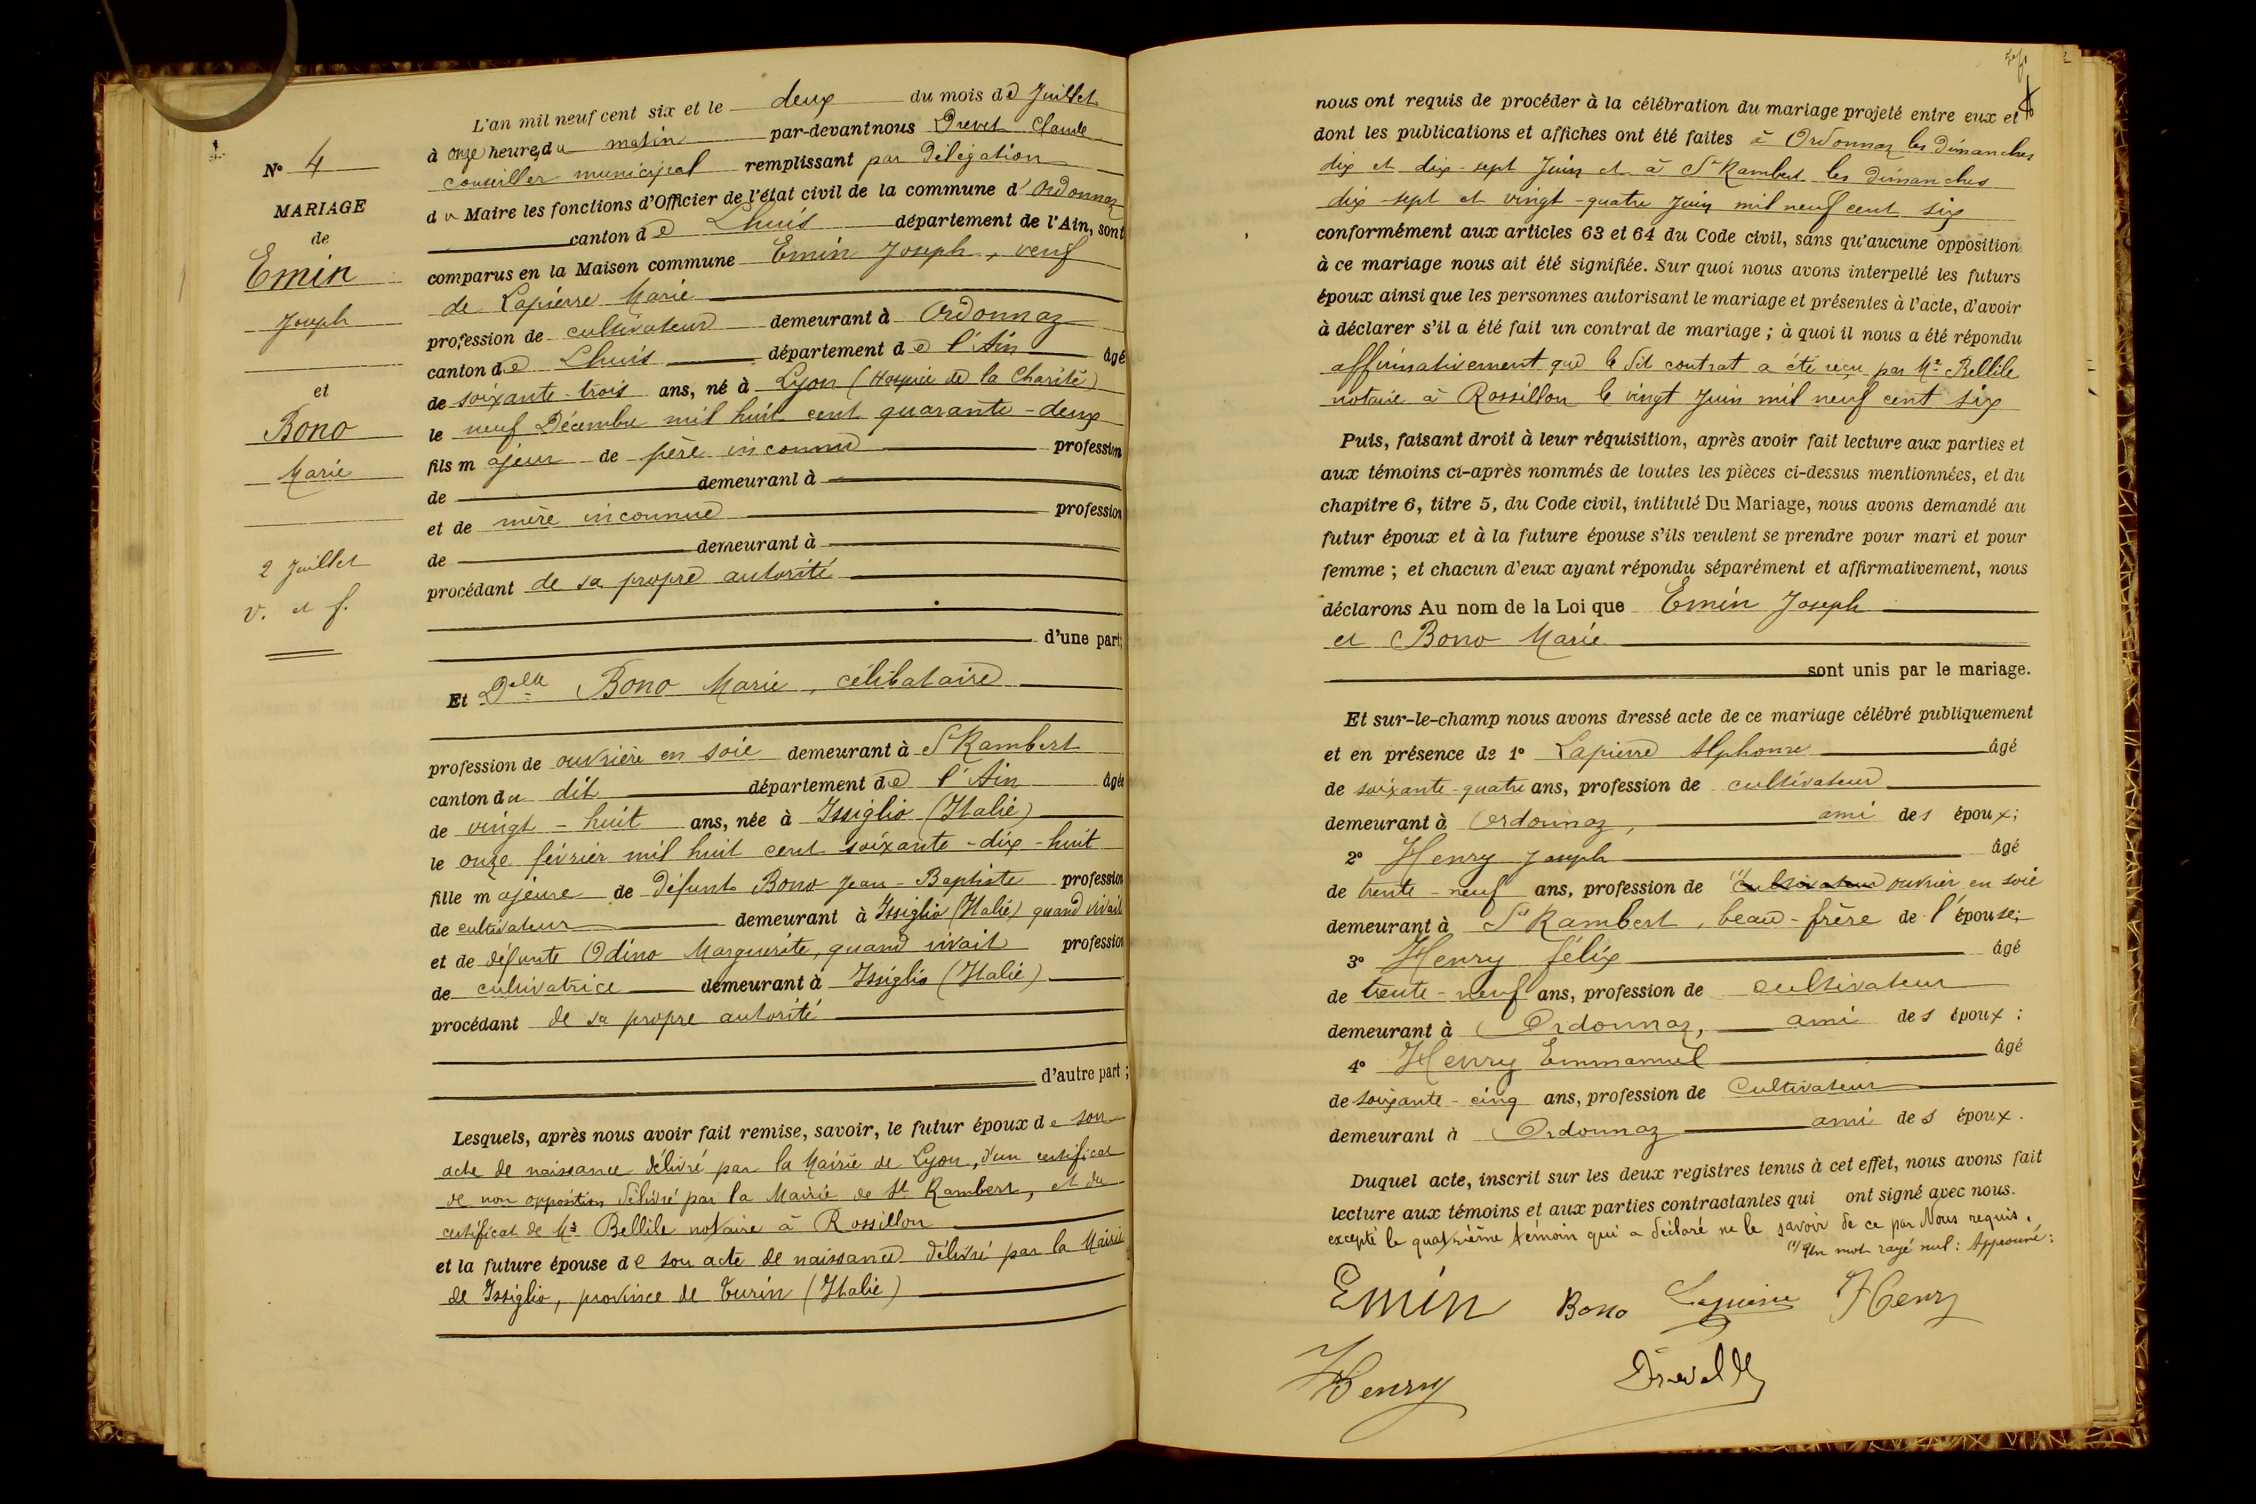 N° 4
MARIAGE
de
Emin
Joseph
et
Bono
Marie
2 Juillet
v. et f.
L'an mil neuf cent six et le deux du mois de Juillet
à onze heures du matin par-devant nous Drevet Claude
conseiller municipal remplissant par délégation
du Maire les fonctions d'Officier de l'état civil de la commune d'Ordonnaz
canton de Lhuis département de l'Ain, sont
comparus en la Maison commune Emin Joseph, veuf
de Lapierre Marie
profession de cultivateur demeurant à Ordonnaz
canton de Lhuis département de l'Ain âgé
de soixante-trois ans, né à Lyon (Hospice de la Charité)
le neuf Décembre mil huit cent quarante-deux
fils majeur de père inconnu profession
de demeurant à
et de mère inconnue profession
de demeurant à
procédant de sa propre autorité
d'une part;
Et Delle Bono Marie, célibataire
profession de ouvrière en soie demeurant à St Rambert
canton du dit département de l'Ain âgée
de vingt-huit ans, née à Issiglio (Italie)
le onze février mil huit cent soixante-dix-huit
fille majeure de défunt Bono Jean-Baptiste profession
de cultivateur demeurant à Issiglio (Italie) quand vivait
et de défunte Odino Marguerite, quand vivait profession
de cultivatrice demeurant à Issiglio (Italie)
procédant de sa propre autorité
d'autre part;
Lesquels, après nous avoir fait remise, savoir, le futur époux de son
acte de naissance délivré par la Mairie de Lyon, d'un certificat
de non opposition délivré par la Mairie de St Rambert, et du
certificat de Me Bellile notaire à Rossillon
et la future épouse de son acte de naissance délivré par la Mairie
de Issiglio, province de Turin (Italie)
nous ont requis de procéder à la célébration du mariage projeté entre eux et
dont les publications et affiches ont été faites à Ordonnaz les dimanches
dix et dix-sept Juin et à St Rambert les dimanches
dix-sept et vingt-quatre Juin mil neuf cent six
conformément aux articles 63 et 64 du Code civil, sans qu'aucune opposition
à ce mariage nous ait été signifiée. Sur quoi nous avons interpellé les futurs
époux ainsi que les personnes autorisant le mariage et présentes à l'acte, d'avoir
à déclarer s'il a été fait un contrat de mariage; à quoi il nous a été répondu
affirmativement que le dit contrat a été reçu par Me Bellile
notaire à Rossillon le vingt Juin mil neuf cent six
Puis, faisant droit à leur réquisition, après avoir fait lecture aux parties et
aux témoins ci-après nommés de toutes les pièces ci-dessus mentionnées, et du
chapitre 6, titre 5, du Code civil, intitulé Du Mariage, nous avons demandé au
futur époux et à la future épouse s'ils veulent se prendre pour mari et pour
femme; et chacun d'eux ayant répondu séparément et affirmativement, nous
déclarons Au nom de la Loi que Emin Joseph
et Bono Marie
sont unis par le mariage.
Et sur-le-champ nous avons dressé acte de ce mariage célébré publiquement
et en présence de 1° Lapierre Alphonse âgé
de soixante-quatre ans, profession de cultivateur
demeurant à Ordonnaz, ami des époux;
2° Henry Joseph âgé
de trente-neuf ans, profession de (1) cultivateur ouvrier en soie
demeurant à St Rambert, beau-frère de l'épouse;
3° Henry félix âgé
de trente-neuf ans, profession de cultivateur
demeurant à Ordonnaz, ami des époux;
4° Henry Emmanuel âgé
de soixante-cinq ans, profession de Cultivateur
demeurant à Ordonnaz ami des époux.
Duquel acte, inscrit sur les deux registres tenus à cet effet, nous avons fait
lecture aux témoins et aux parties contractantes qui ont signé avec nous.
excepté le quatrième témoin qui a déclaré ne le savoir de ce par Nous requis.
(1) Un mot rayé nul: Approuvé:
Emin Bono Lapierre Henry
Henry Drevet